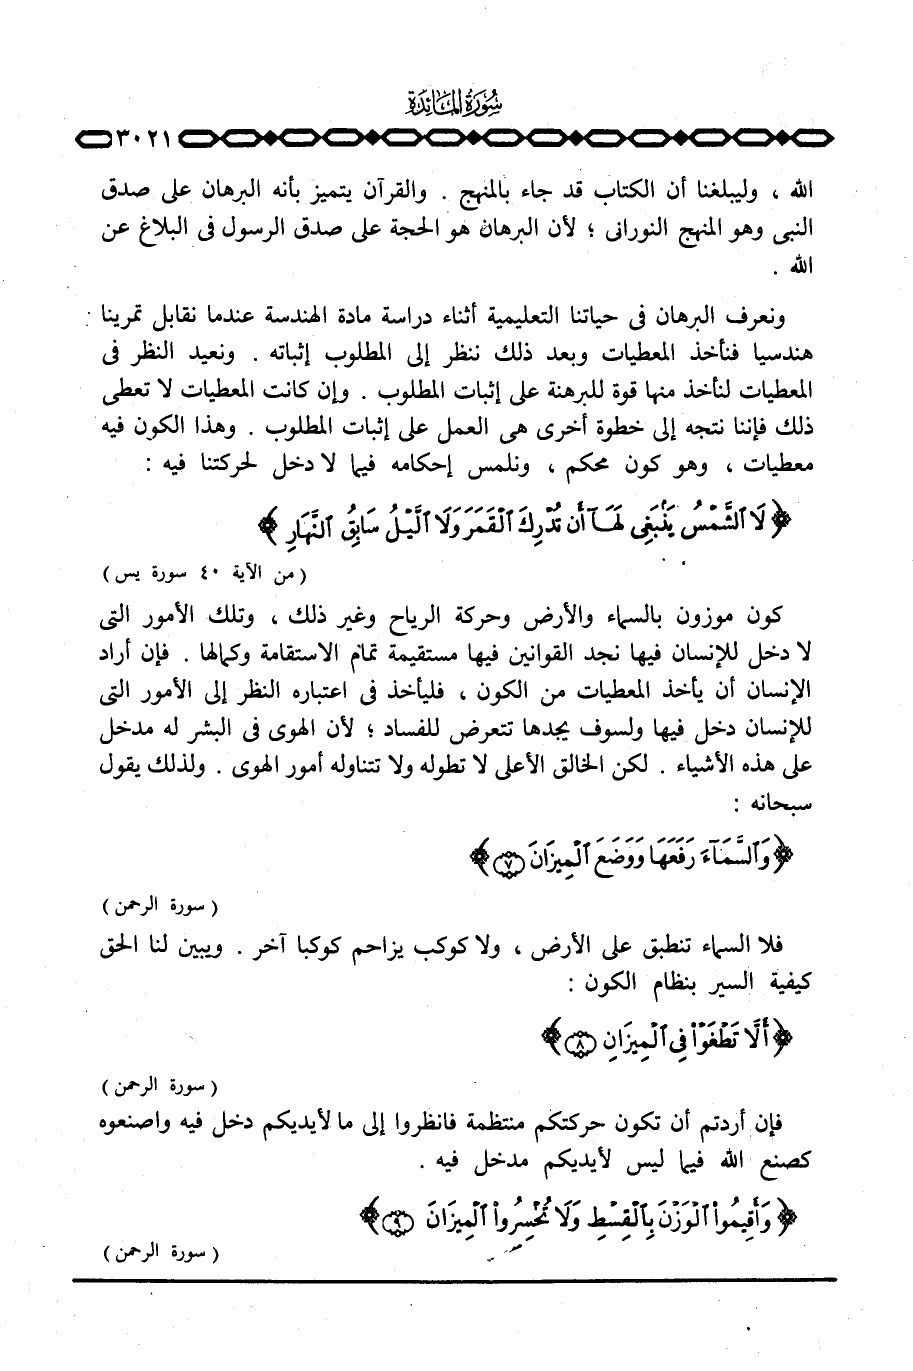 سُورَةُ المَائِدَةِ
٣٠٢١
الله ، وليبلغنا أن الكتاب قد جاء بالمنهج . والقرآن يتميز بأنه البرهان على صدق
النبى وهو المنهج النورانى ؛ لأن البرهان هو الحجة على صدق الرسول فى البلاغ عن
الله .
ونعرف البرهان فى حياتنا التعليمية أثناء دراسة مادة الهندسة عندما نقابل تمرينا
هندسيا فنأخذ المعطيات وبعد ذلك ننظر إلى المطلوب إثباته . ونعيد النظر فى
المعطيات لنأخذ منها قوة للبرهنة على إثبات المطلوب . وإن كانت المعطيات لا تعطى
ذلك فإننا نتجه إلى خطوة أخرى هى العمل على إثبات المطلوب . وهذا الكون فيه
معطيات ، وهو كون محكم ، ونلمس إحكامه فيما لا دخل لحركتنا فيه :
﴿ لَا ٱلشَّمْسُ يَنۢبَغِى لَهَآ أَن تُدْرِكَ ٱلْقَمَرَ وَلَا ٱلَّيْلُ سَابِقُ ٱلنَّهَارِ ﴾
( من الآية ٤٠ سورة يس )
كون موزون بالسماء والأرض وحركة الرياح وغير ذلك ، وتلك الأمور التى
لا دخل للإنسان فيها نجد القوانين فيها مستقيمة تمام الاستقامة وكمالها . فإن أراد
الإنسان أن يأخذ المعطيات من الكون ، فليأخذ فى اعتباره النظر إلى الأمور التى
للإنسان دخل فيها ولسوف يجدها تتعرض للفساد ؛ لأن الهوى فى البشر له مدخل
على هذه الأشياء . لكن الخالق الأعلى لا تطوله ولا تتناوله أمور الهوى . ولذلك يقول
سبحانه :
﴿ وَٱلسَّمَآءَ رَفَعَهَا وَوَضَعَ ٱلْمِيزَانَ ٧ ﴾
( سورة الرحمن )
فلا السماء تنطبق على الأرض ، ولا كوكب يزاحم كوكبا آخر . ويبين لنا الحق
كيفية السير بنظام الكون :
﴿ أَلَّا تَطْغَوْا۟ فِى ٱلْمِيزَانِ ٨ ﴾
( سورة الرحمن )
فإن أردتم أن تكون حركتكم منتظمة فانظروا إلى ما لأيديكم دخل فيه واصنعوه
كصنع الله فيما ليس لأيديكم مدخل فيه .
﴿ وَأَقِيمُوا۟ ٱلْوَزْنَ بِٱلْقِسْطِ وَلَا تُخْسِرُوا۟ ٱلْمِيزَانَ ٩ ﴾
( سورة الرحمن )